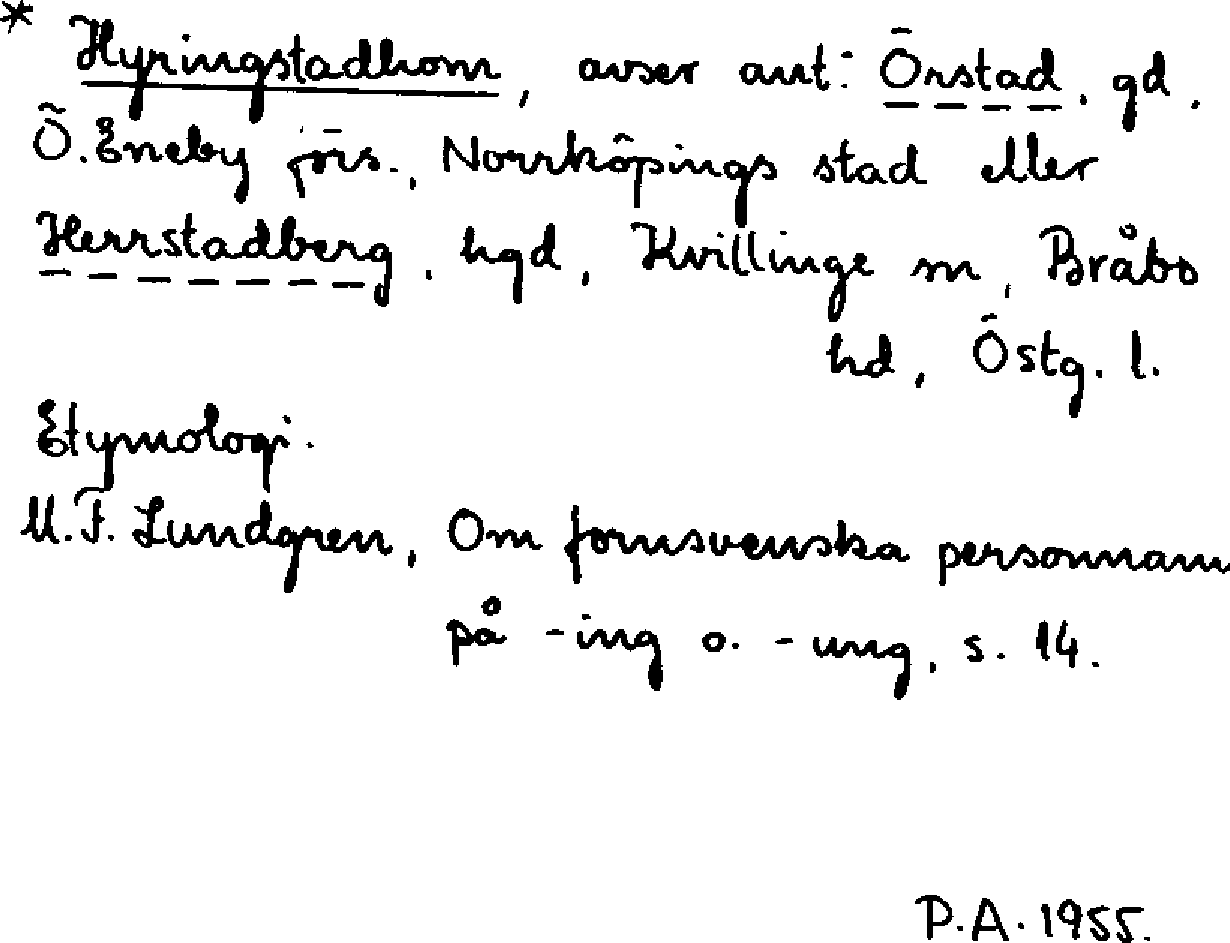 * Hyringstadhom, avser ant: Örstad, gd,
Ö. Eneby förs., Norrköpings stad eller
Herrstadberg, hgd, Kvillinge sn, Bråbo
hd, Östg. l.
Etymologi.
M.F. Lundgren, Om fornsvenska personnamn
på -ing o. -ung, s. 14.
P.A. 1955.